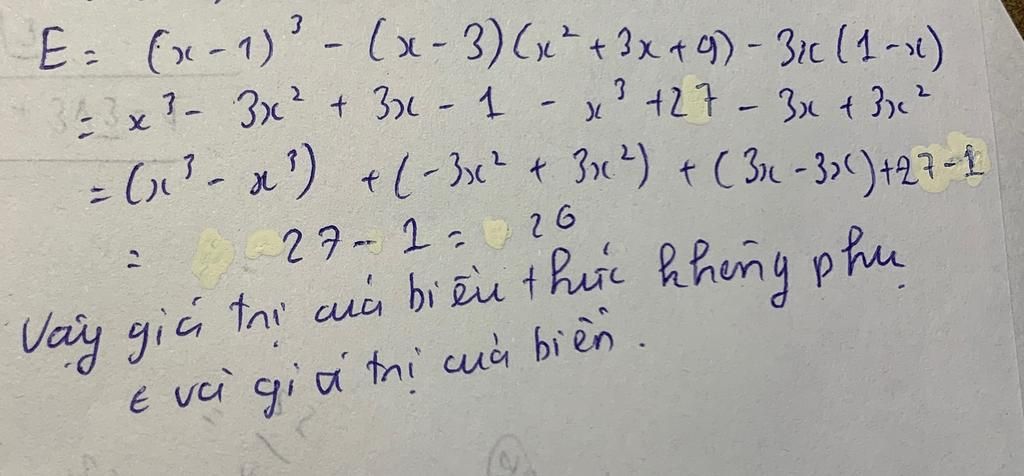 E = (x - 1)³ - (x - 3)(x² + 3x + 9) - 3x(1 - x)
= x³ - 3x² + 3x - 1 - x³ + 27 - 3x + 3x²
= (x³ - x³) + (-3x² + 3x²) + (3x - 3x) + 27 - 1
= 27 - 1 = 26
Vậy giá trị của biểu thức không phụ
t vào giá trị của biến.